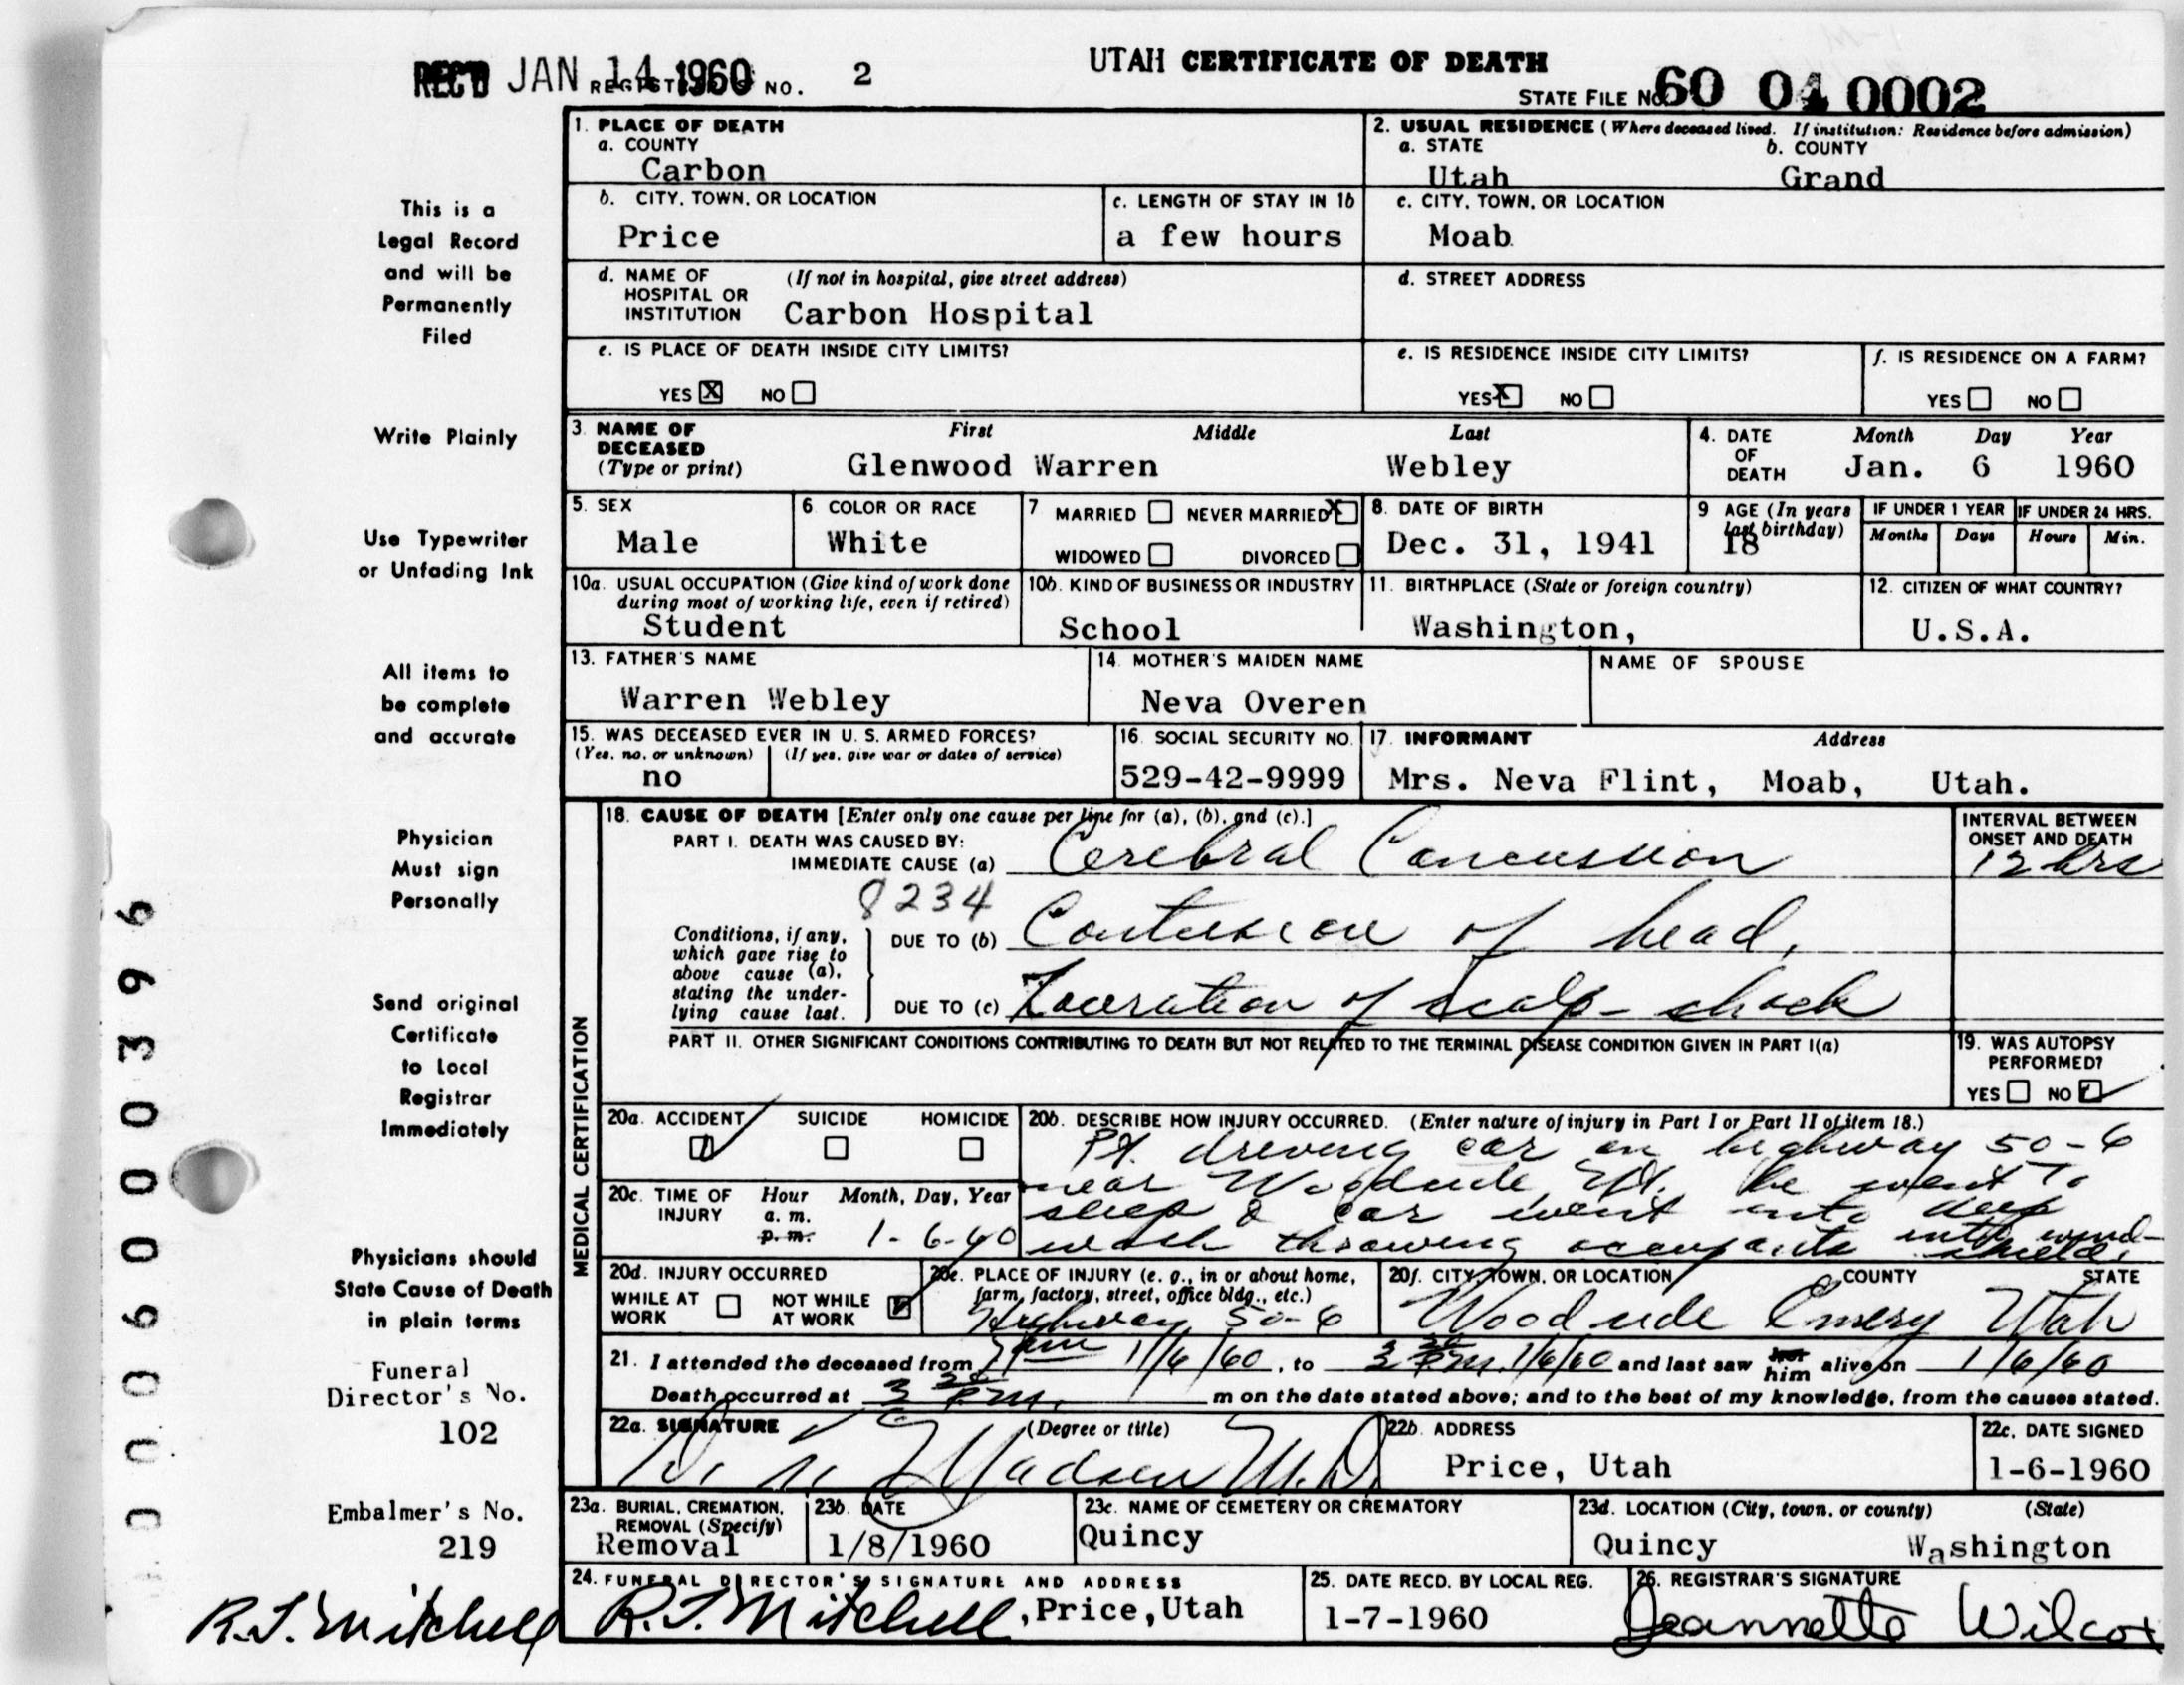 UTAH CERTIFICATE OF DEATH
REC'D JAN 14 1960 NO. 2
STATE FILE NO. 60 04 0002
1. PLACE OF DEATH
a. COUNTY
Carbon
2. USUAL RESIDENCE (Where deceased lived. If institution: Residence before admission)
a. STATE b. COUNTY
Utah Grand
b. CITY, TOWN, OR LOCATION
Price
c. LENGTH OF STAY IN 1b
a few hours
c. CITY, TOWN, OR LOCATION
Moab
d. NAME OF HOSPITAL OR INSTITUTION (If not in hospital, give street address)
Carbon Hospital
d. STREET ADDRESS
e. IS PLACE OF DEATH INSIDE CITY LIMITS?
YES X NO
e. IS RESIDENCE INSIDE CITY LIMITS?
YES X NO
f. IS RESIDENCE ON A FARM?
YES NO
3. NAME OF DECEASED (Type or print)
First Middle Last
Glenwood Warren Webley
4. DATE OF DEATH
Month Day Year
Jan. 6 1960
5. SEX
Male
6 COLOR OR RACE
White
7 MARRIED NEVER MARRIED X
WIDOWED DIVORCED
8. DATE OF BIRTH
Dec. 31, 1941
9 AGE (In years last birthday)
18
IF UNDER 1 YEAR
Months Days
IF UNDER 24 HRS.
Hours Min.
10a. USUAL OCCUPATION (Give kind of work done during most of working life, even if retired)
Student
10b. KIND OF BUSINESS OR INDUSTRY
School
11. BIRTHPLACE (State or foreign country)
Washington,
12. CITIZEN OF WHAT COUNTRY?
U.S.A.
13. FATHER'S NAME
Warren Webley
14. MOTHER'S MAIDEN NAME
Neva Overen
NAME OF SPOUSE
15. WAS DECEASED EVER IN U. S. ARMED FORCES?
(Yes, no, or unknown) (If yes, give war or dates of service)
no
16. SOCIAL SECURITY NO.
529-42-9999
17. INFORMANT Address
Mrs. Neva Flint, Moab, Utah.
18. CAUSE OF DEATH [Enter only one cause per line for (a), (b), and (c).]
PART I. DEATH WAS CAUSED BY:
IMMEDIATE CAUSE (a) Cerebral Concussion
INTERVAL BETWEEN ONSET AND DEATH
12 hrs
8234
Conditions, if any, which gave rise to above cause (a), stating the underlying cause last.
DUE TO (b) Contusion of head,
DUE TO (c) Laceration of scalp - shock
PART II. OTHER SIGNIFICANT CONDITIONS CONTRIBUTING TO DEATH BUT NOT RELATED TO THE TERMINAL DISEASE CONDITION GIVEN IN PART I(a)
19. WAS AUTOPSY PERFORMED?
YES NO
MEDICAL CERTIFICATION
20a. ACCIDENT SUICIDE HOMICIDE
20b. DESCRIBE HOW INJURY OCCURRED. (Enter nature of injury in Part I or Part II of item 18.)
Pt. driving car on highway 50-6
near Woodside Ut. he went to
sleep & car went into deep
wash throwing occupants into wind-
shield.
20c. TIME OF INJURY
Hour Month, Day, Year
a. m.
p. m. 1-6-60
20d. INJURY OCCURRED
WHILE AT WORK NOT WHILE AT WORK
20e. PLACE OF INJURY (e. g., in or about home, farm, factory, street, office bldg., etc.)
Highway 50-6
20f. CITY, TOWN, OR LOCATION COUNTY STATE
Woodside Emery Utah
21. I attended the deceased from 7 am 1/6/60, to 3 30 P.M. 1/6/60 and last saw her him alive on 1/6/60
Death occurred at 3 30 P.M. m on the date stated above; and to the best of my knowledge, from the causes stated.
22a. SIGNATURE (Degree or title)
Madsen M.D.
22b. ADDRESS
Price, Utah
22c. DATE SIGNED
1-6-1960
23a. BURIAL, CREMATION, REMOVAL (Specify)
Removal
23b. DATE
1/8/1960
23c. NAME OF CEMETERY OR CREMATORY
Quincy
23d. LOCATION (City, town, or county) (State)
Quincy Washington
24. FUNERAL DIRECTOR'S SIGNATURE AND ADDRESS
R.J. Mitchell, Price, Utah
25. DATE RECD. BY LOCAL REG.
1-7-1960
26. REGISTRAR'S SIGNATURE
Jeannette Wilcox
This is a
Legal Record
and will be
Permanently
Filed
Write Plainly
Use Typewriter
or Unfading Ink
All items to
be complete
and accurate
Physician
Must sign
Personally
Send original
Certificate
to Local
Registrar
Immediately
Physicians should
State Cause of Death
in plain terms
Funeral
Director's No.
102
Embalmer's No.
219
R.J. Mitchell
000600396